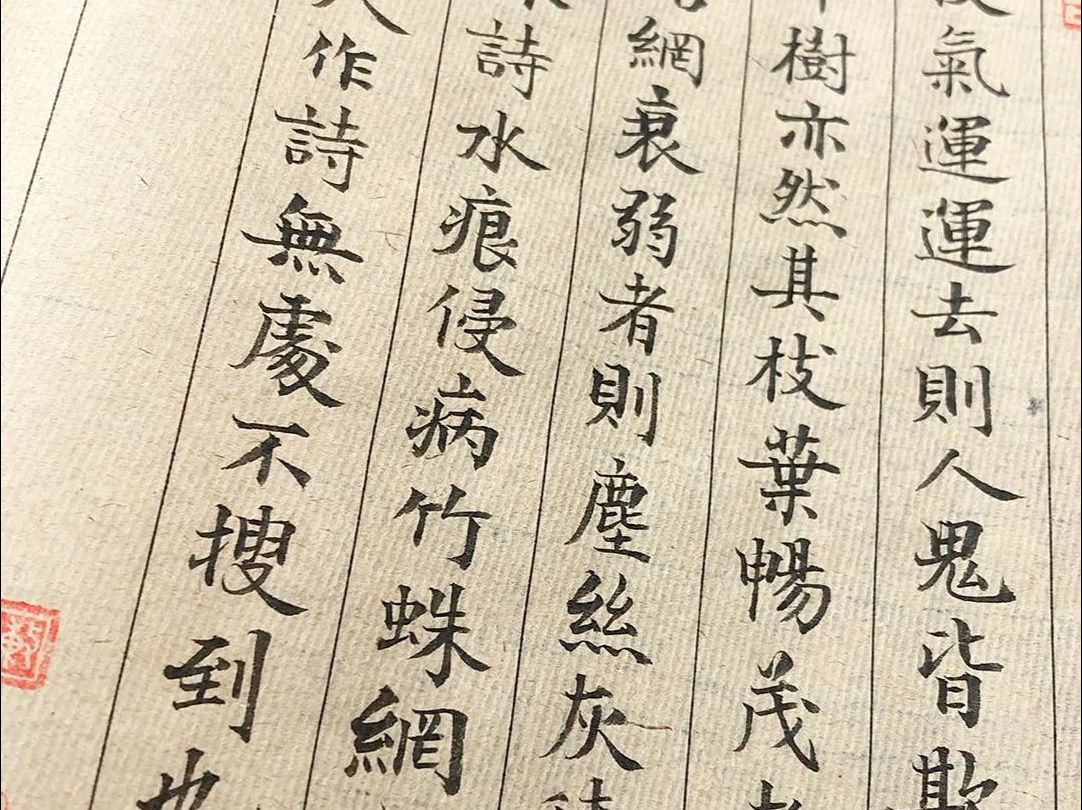 氣運運去則人鬼皆欺
樹亦然其枝葉暢茂
網衰弱者則塵絲灰
詩水痕侵病竹蛛網
作詩無處不搜到也